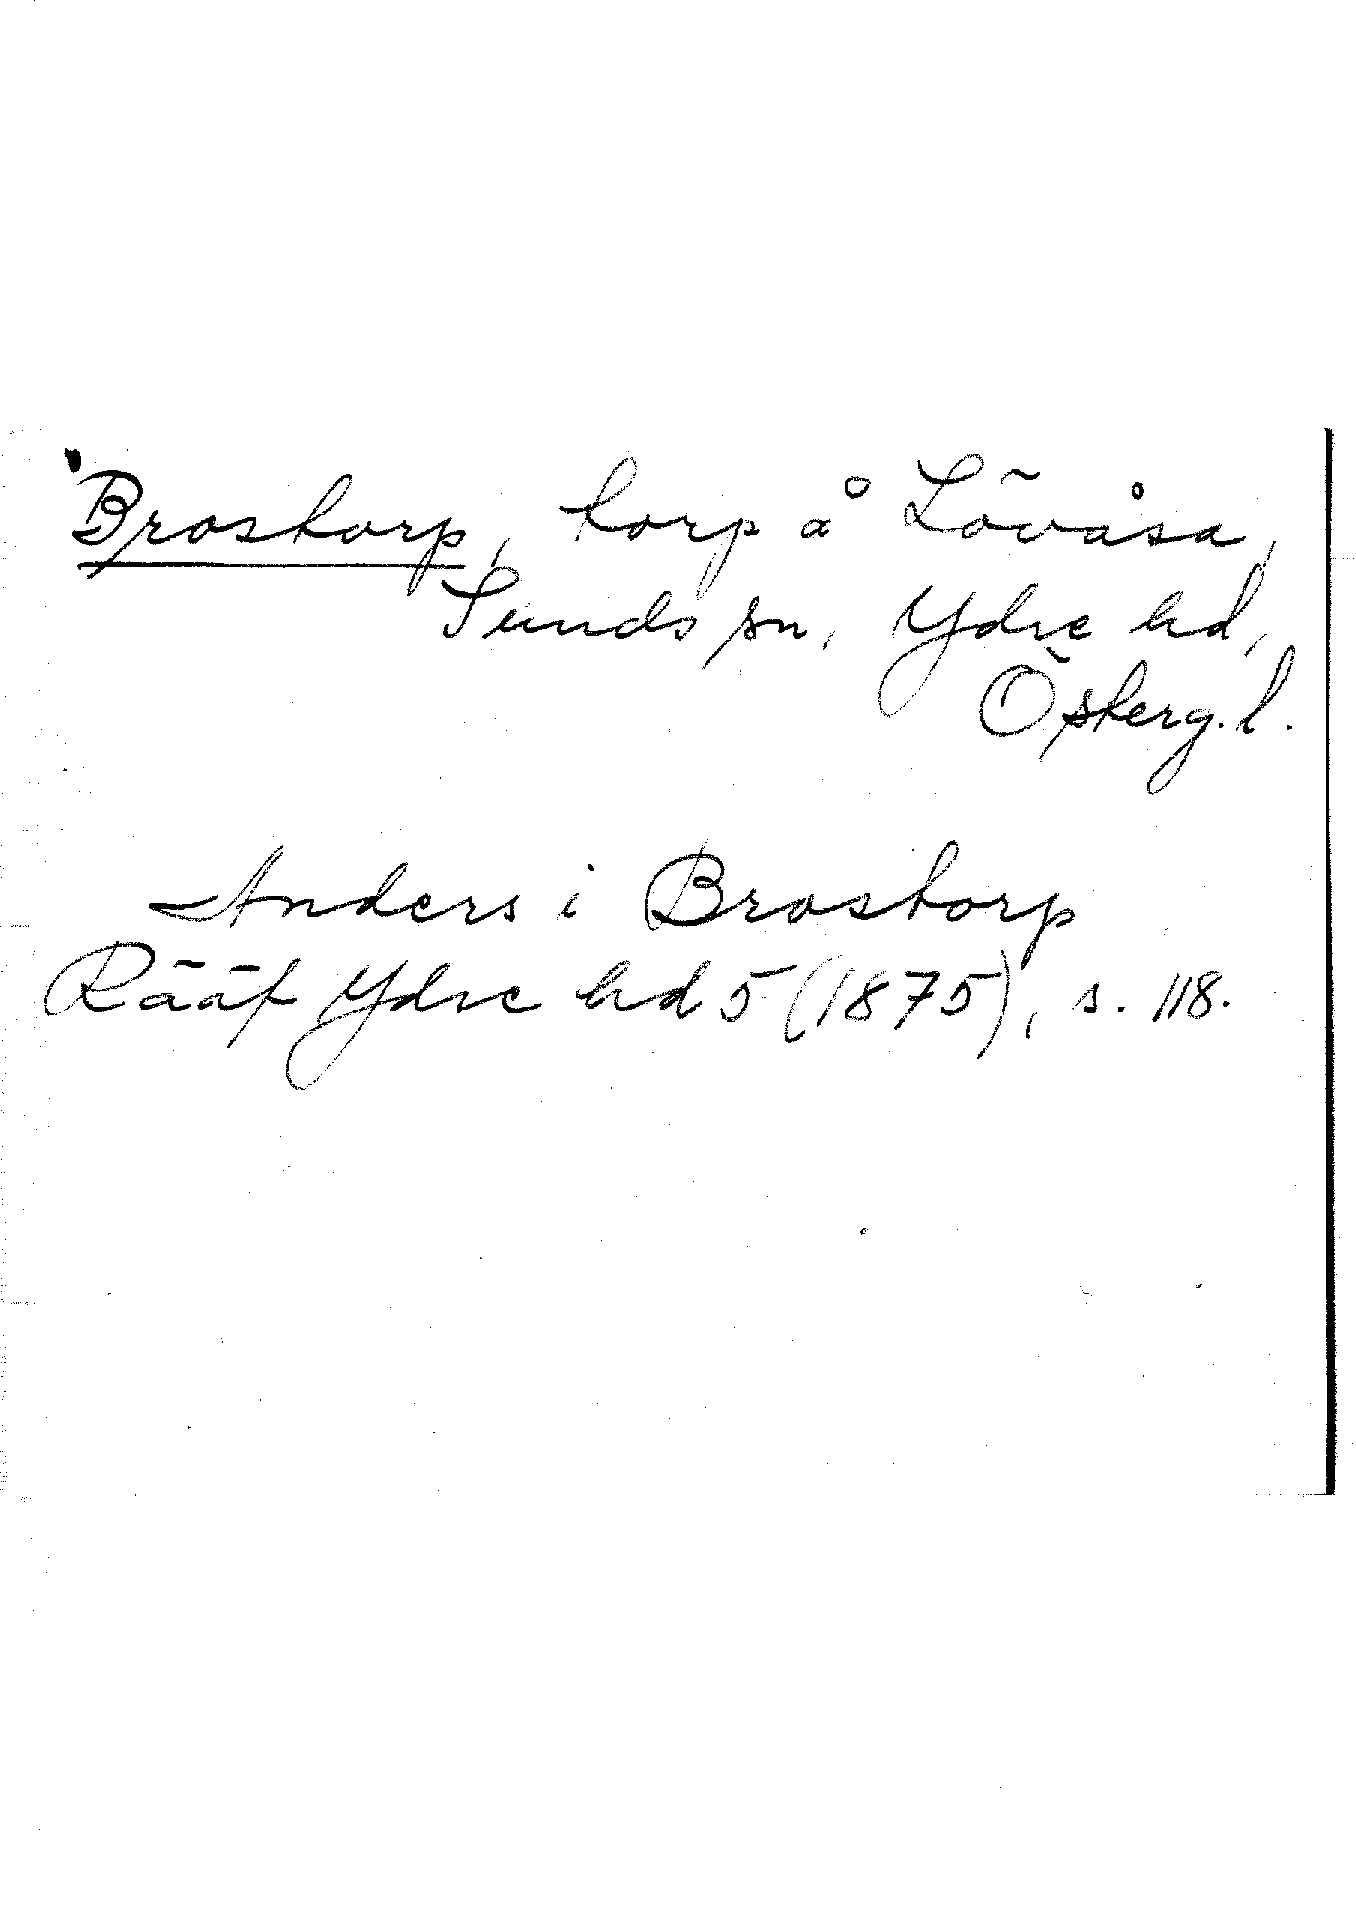 Brostorp, torp å Lövåsa,
Sunds sn, Ydre hd,
Österg. l.
Anders i Brostorp
Rääf Ydre hd 5 (1875), s. 118.